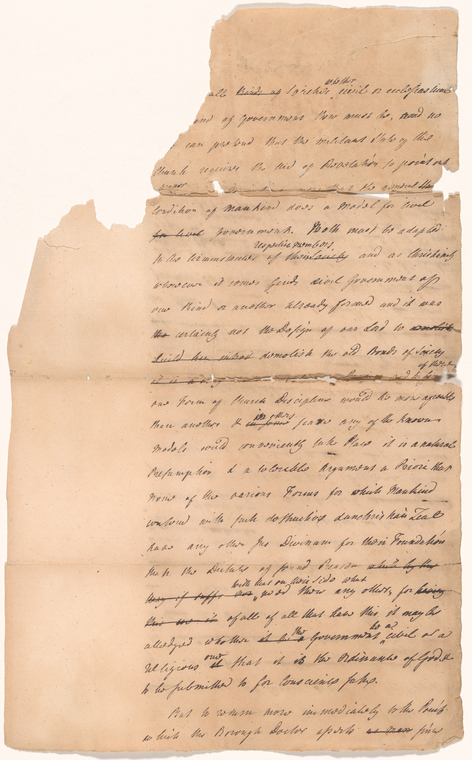 all Societies whether civil or ecclesiastical
of Government there must be, and no
can pretend that the militant State of the
Church requires the Aid of Revelation to point out
the general
Condition of Mankind does a Model for civil
for civil government. Both must be adapted
to the Circumstances of respective members and as Christianity
wherever it comes finds civil Government of
one Kind or another already formed and it was
the certainly not the Design of our Lord to
demolish the old Bonds of Society
one Form of Church Discipline would be more agreeable
than another & in others some any of the known
Models could conveniently take Place it is a natural
Presumption & a tolerable Argument a Priori that
none of the various Forms for which Mankind
contend with such destructive Zeal
have any other Jus Divinum for their Foundation
than the Dictates of sound Reason which by the
they if both has on their side what need there any others, for having
this use is of all of all that have this it may be
alledged whether the Government be a civil or a
religious one that it is the Ordinance of God &
to be submitted to for Conscience sake.
But to return more immediately to the Point
which the Doctor